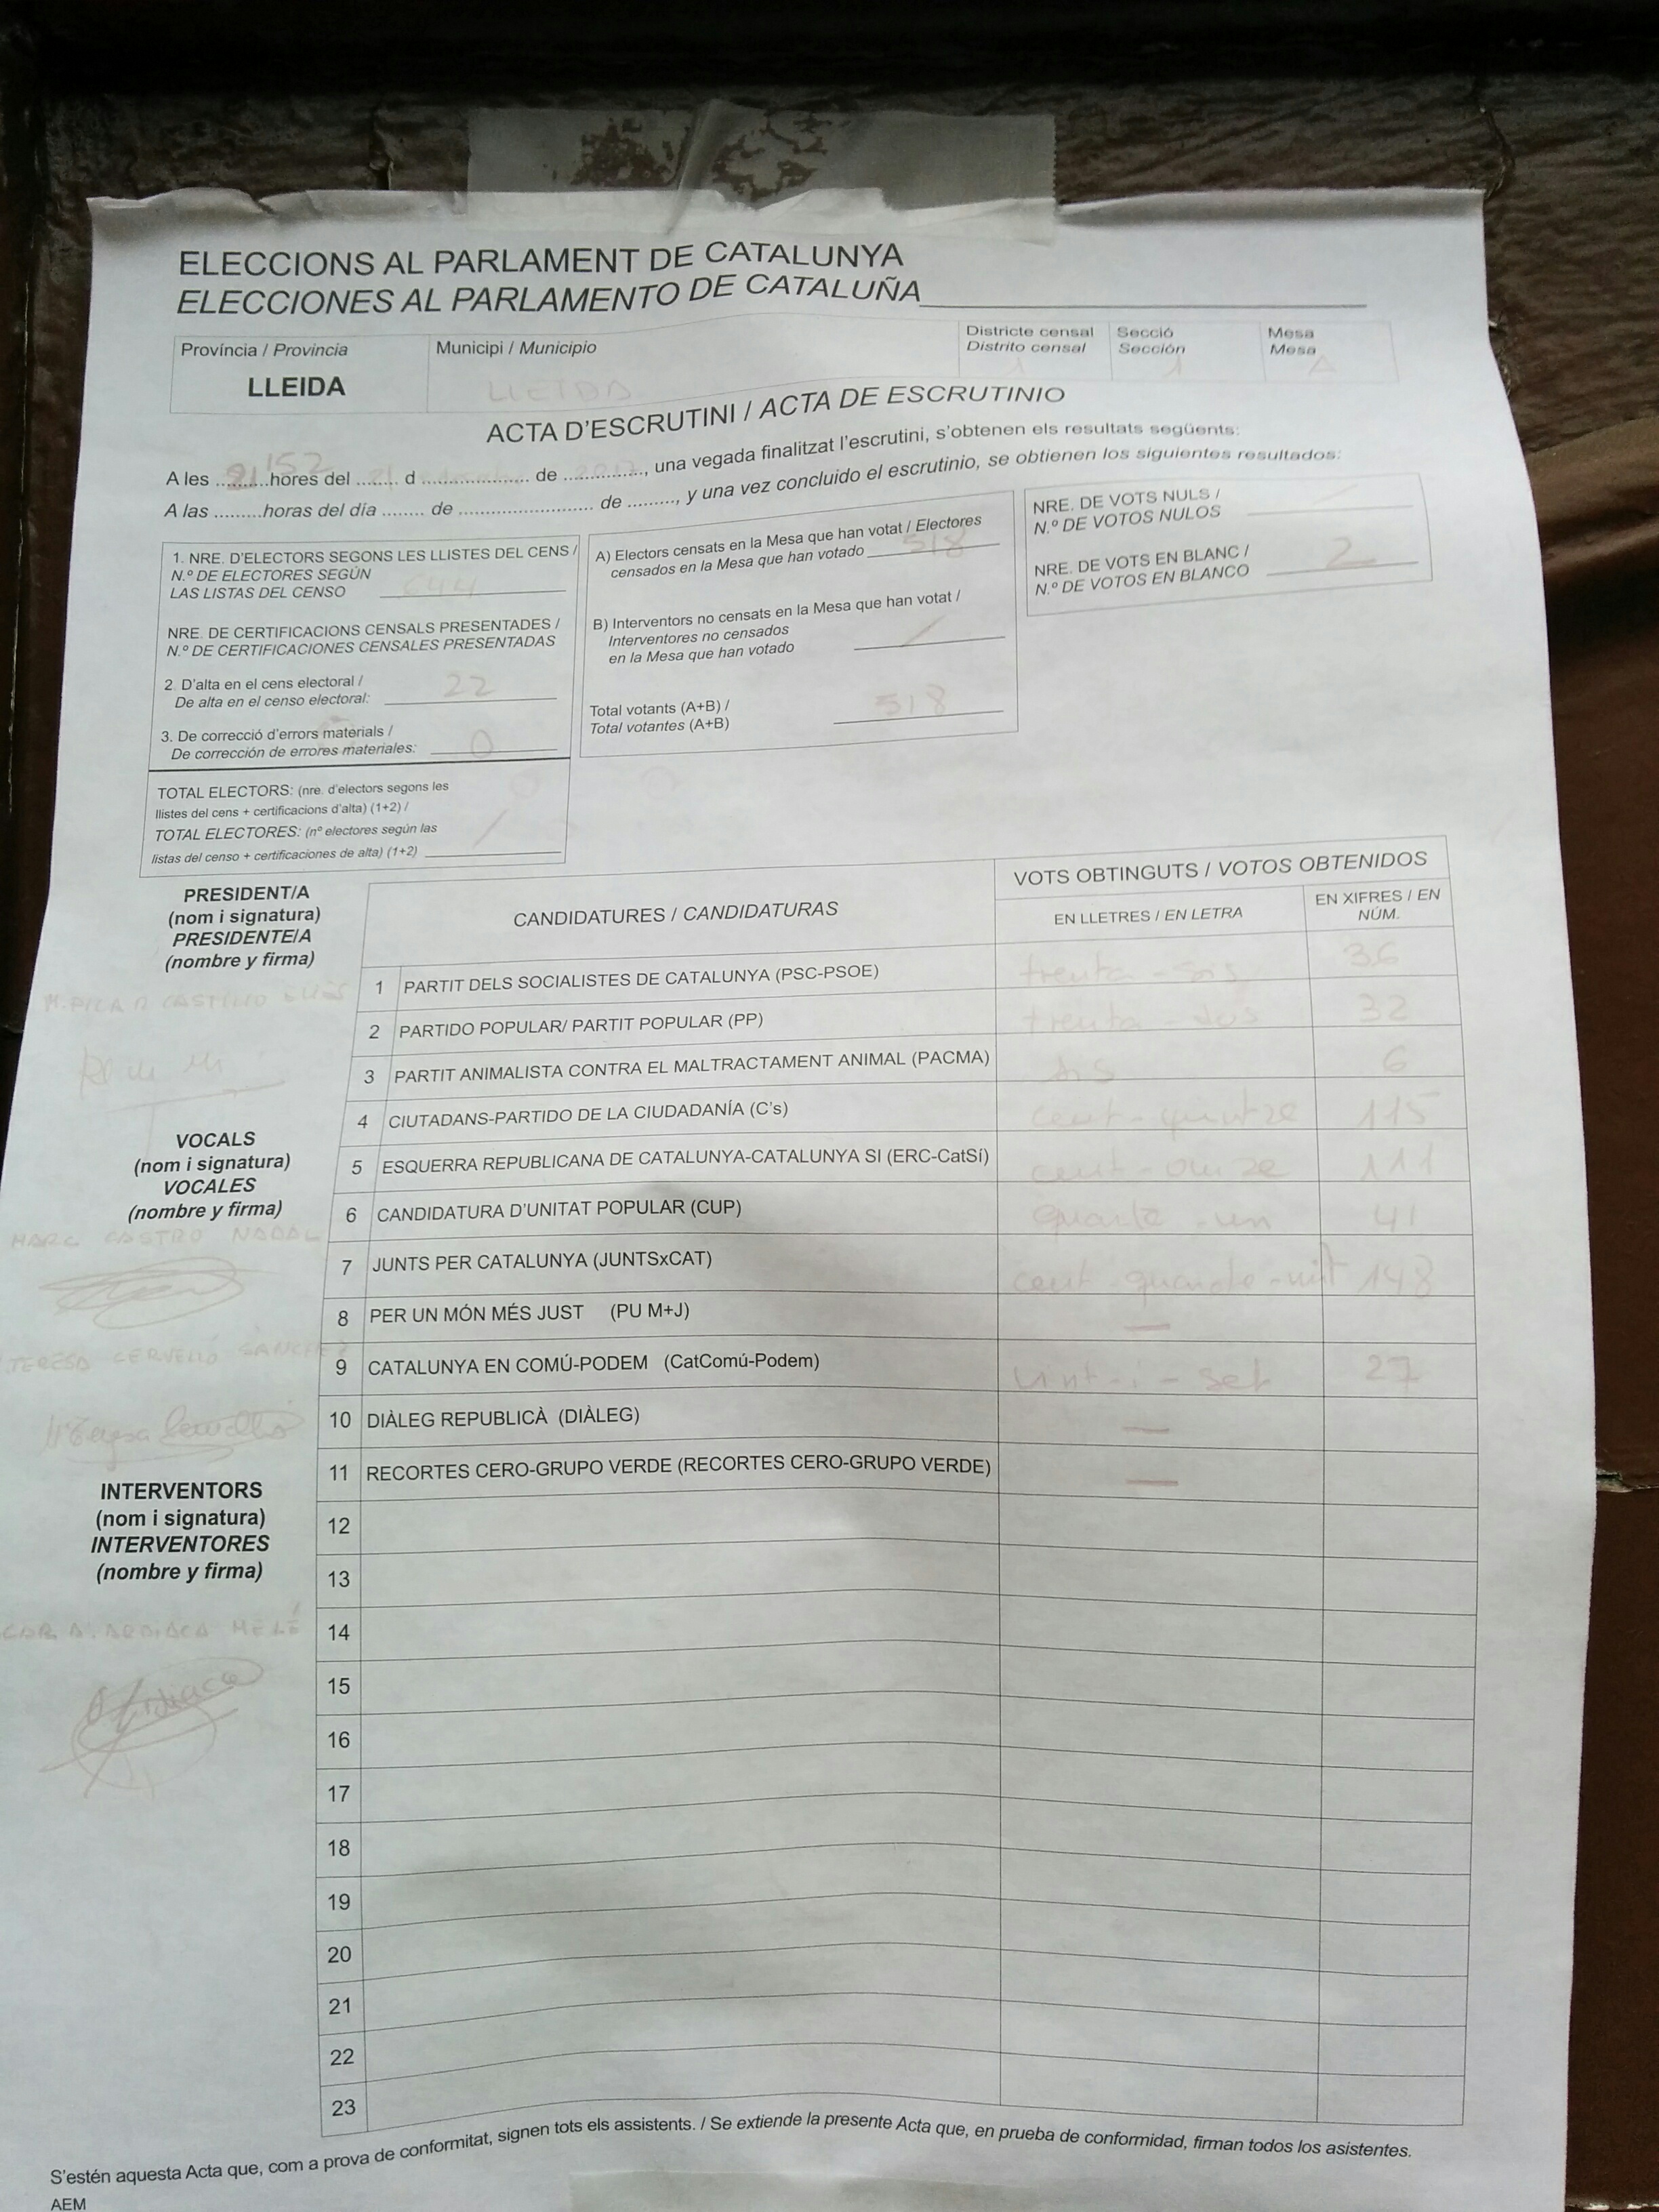 ELECCIONS AL PARLAMENT DE CATALUNYA
ELECCIONES AL PARLAMENTO DE CATALUÑA
Província / Provincia
LLEIDA
Municipi / Municipio
LLEIDA
Districte censal
Distrito censal
1
Secció
Sección
1
Mesa
Mesa
A
ACTA D'ESCRUTINI / ACTA DE ESCRUTINIO
A les 21'52 hores del ....... d ........................ de 2017, una vegada finalitzat l'escrutini, s'obtenen els resultats següents:
A las .........horas del día ........ de ........................ de ........., y una vez concluido el escrutinio, se obtienen los siguientes resultados:
1. NRE. D'ELECTORS SEGONS LES LLISTES DEL CENS /
N.º DE ELECTORES SEGÚN
LAS LISTAS DEL CENSO 644
NRE. DE CERTIFICACIONS CENSALS PRESENTADES /
N.º DE CERTIFICACIONES CENSALES PRESENTADAS
2. D'alta en el cens electoral /
De alta en el censo electoral: 22
3. De correcció d'errors materials /
De corrección de errores materiales: 0
TOTAL ELECTORS: (nre. d'electors segons les
llistes del cens + certificacions d'alta) (1+2) /
TOTAL ELECTORES: (nº electores según las
listas del censo + certificaciones de alta) (1+2)
A) Electors censats en la Mesa que han votat / Electores
censados en la Mesa que han votado 518
B) Interventors no censats en la Mesa que han votat /
Interventores no censados
en la Mesa que han votado /
Total votants (A+B) /
Total votantes (A+B) 518
NRE. DE VOTS NULS /
N.º DE VOTOS NULOS /
NRE. DE VOTS EN BLANC /
N.º DE VOTOS EN BLANCO 2
PRESIDENT/A
(nom i signatura)
PRESIDENTE/A
(nombre y firma)
M. PILAR CASTILLO
VOCALS
(nom i signatura)
VOCALES
(nombre y firma)
MARC CASTRO NADAL
TERESA CERVELLÓ SANCHEZ
INTERVENTORS
(nom i signatura)
INTERVENTORES
(nombre y firma)
ARDIACA MELÉ
CANDIDATURES / CANDIDATURAS
VOTS OBTINGUTS / VOTOS OBTENIDOS
EN LLETRES / EN LETRA
EN XIFRES / EN
NÚM.
1 PARTIT DELS SOCIALISTES DE CATALUNYA (PSC-PSOE) trenta-sis 36
2 PARTIDO POPULAR/ PARTIT POPULAR (PP) trenta-dos 32
3 PARTIT ANIMALISTA CONTRA EL MALTRACTAMENT ANIMAL (PACMA) sis 6
4 CIUTADANS-PARTIDO DE LA CIUDADANÍA (C's) cent-quinze 115
5 ESQUERRA REPUBLICANA DE CATALUNYA-CATALUNYA SI (ERC-CatSí) cent-onze 111
6 CANDIDATURA D'UNITAT POPULAR (CUP) quarta-un 41
7 JUNTS PER CATALUNYA (JUNTSxCAT) cent-quaranta-vuit 148
8 PER UN MÓN MÉS JUST (PU M+J) —
9 CATALUNYA EN COMÚ-PODEM (CatComú-Podem) vint-i-set 27
10 DIÀLEG REPUBLICÀ (DIÀLEG) —
11 RECORTES CERO-GRUPO VERDE (RECORTES CERO-GRUPO VERDE) —
12
13
14
15
16
17
18
19
20
21
22
23
S'estén aquesta Acta que, com a prova de conformitat, signen tots els assistents. / Se extiende la presente Acta que, en prueba de conformidad, firman todos los asistentes.
AEM